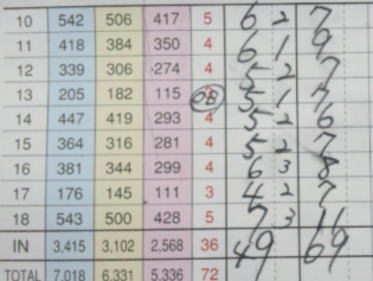 10 542 506 417 5 6 2 7
11 418 384 350 4 6 1 9
12 339 306 274 4 5 2 7
13 205 182 115 OB 5 1 7
14 447 419 293 4 5 2 6
15 364 316 281 4 5 2 7
16 381 344 299 4 6 3 8
17 176 145 111 3 4 2 7
18 543 500 428 5 7 3 11
IN 3,415 3,102 2,568 36 49 69
TOTAL 7,018 6,331 5,336 72